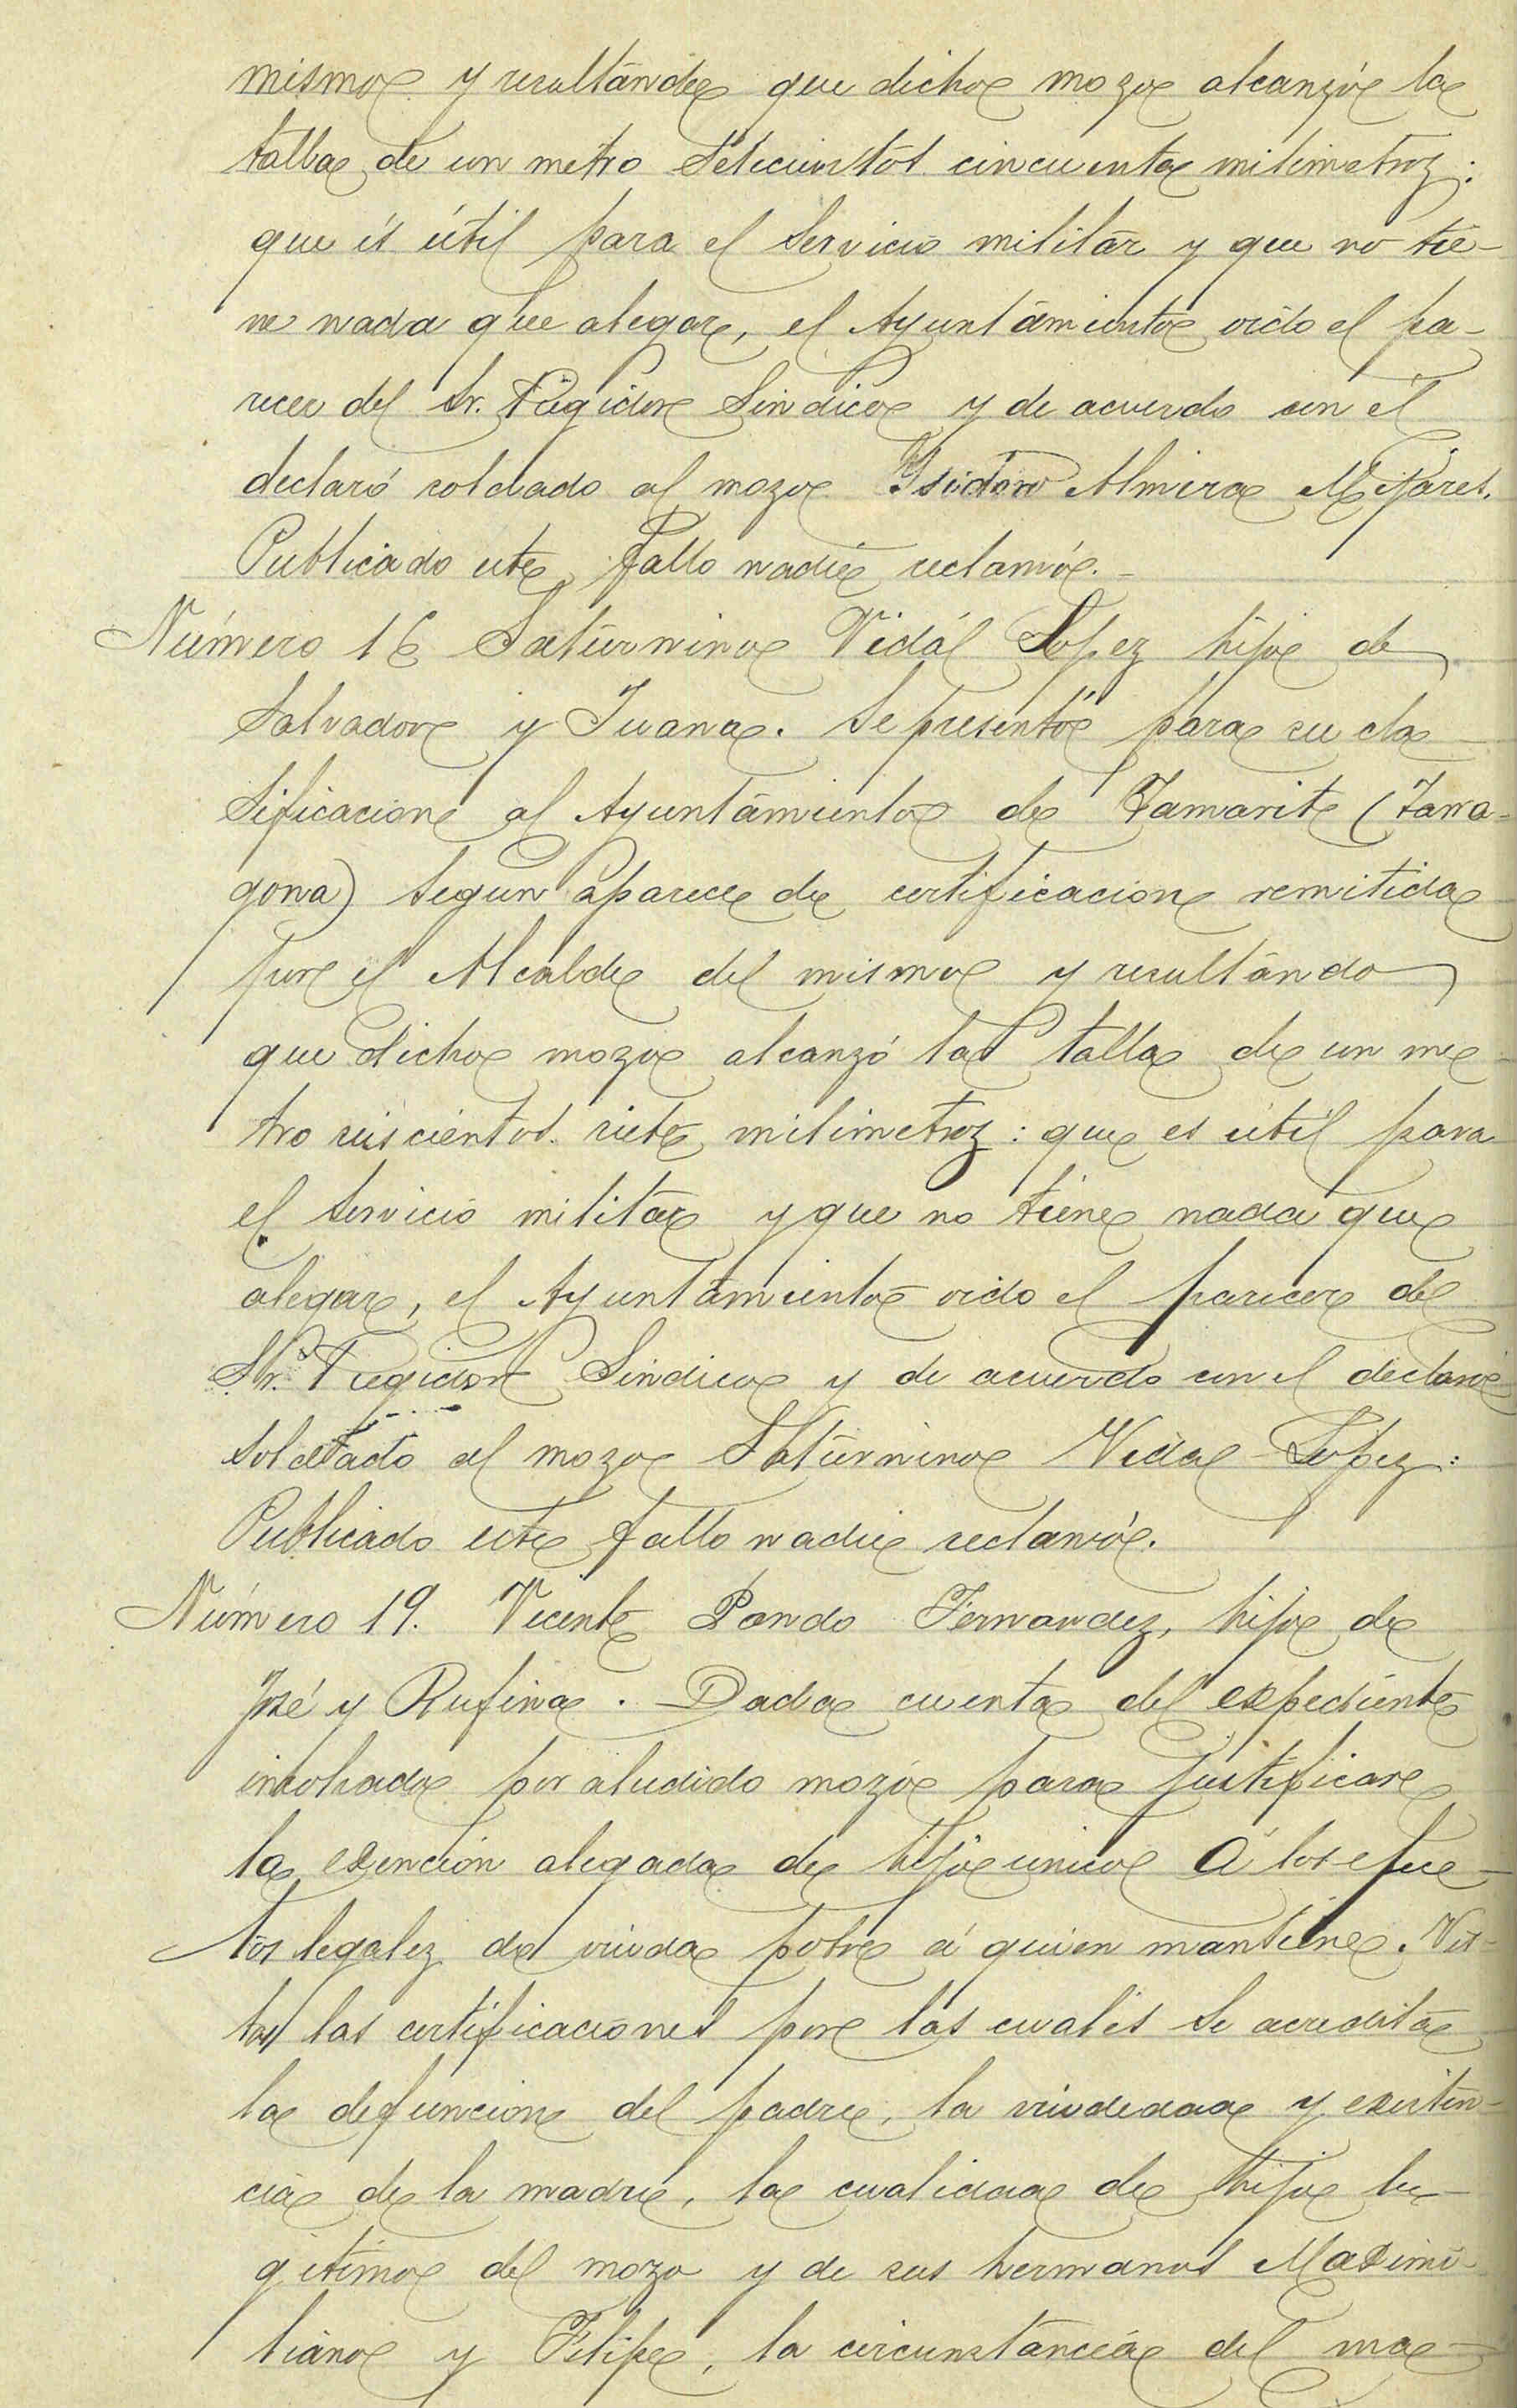 mismo y resultando que dicho mozo alcanzó la
talla de un metro setecientos cincuenta milimetroz:
que és útil para el servicio militar y que no tie-
ne nada que alegar, el Ayuntamiento oido el pa-
recer del Sr. Regidor Sindico y de acuerdo con él
declaró soldado al mozo Isidoro Almira
Publicado este fallo nadie reclamó.
Número 16 Saturnino Vidál Lopez hijo de
Salvador y Juana. Se presentó para su cla
sificacion al Ayuntamiento de Tamarite (Tarra-
gona) segun aparece de certificacion remitida
por el Alcalde del mismo y resultando
que dicho mozo alcanzó la talla de un me-
tro seiscientos siete milimetroz: que es útil para
el servicio militar y que no tiene nada que
alegar, el Ayuntamiento oido el parecer del
Sr. Regidor Sindico y de acuerdo con el declaró
soldado al mozo Saturnino Vidal Lopez:
Publicado este fallo nadie reclamó.
Número 19. Vicente Pando Fernandez, hijo de
José y Rufina. Dada cuenta del expediente
incohado por aludido mozo para justificar
la exención alegada de hijo unico á los efec-
tos legalez de viuda pobre á quien mantiene. Vis-
tas las certificaciones por las cualés se acredita
la defuncion del padre, la viudedad y existen-
cia de la madre, la cualidad de hijo le-
gitimo del mozo y de sus hermanos Maximi-
liano y Felipe, la circunstancia del ma-